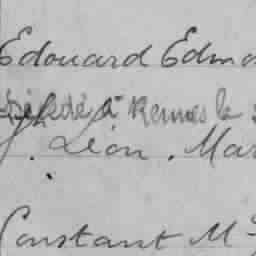 Edouard Edmo
décédé à Rennes le
J. Léon. Mar
Constant M